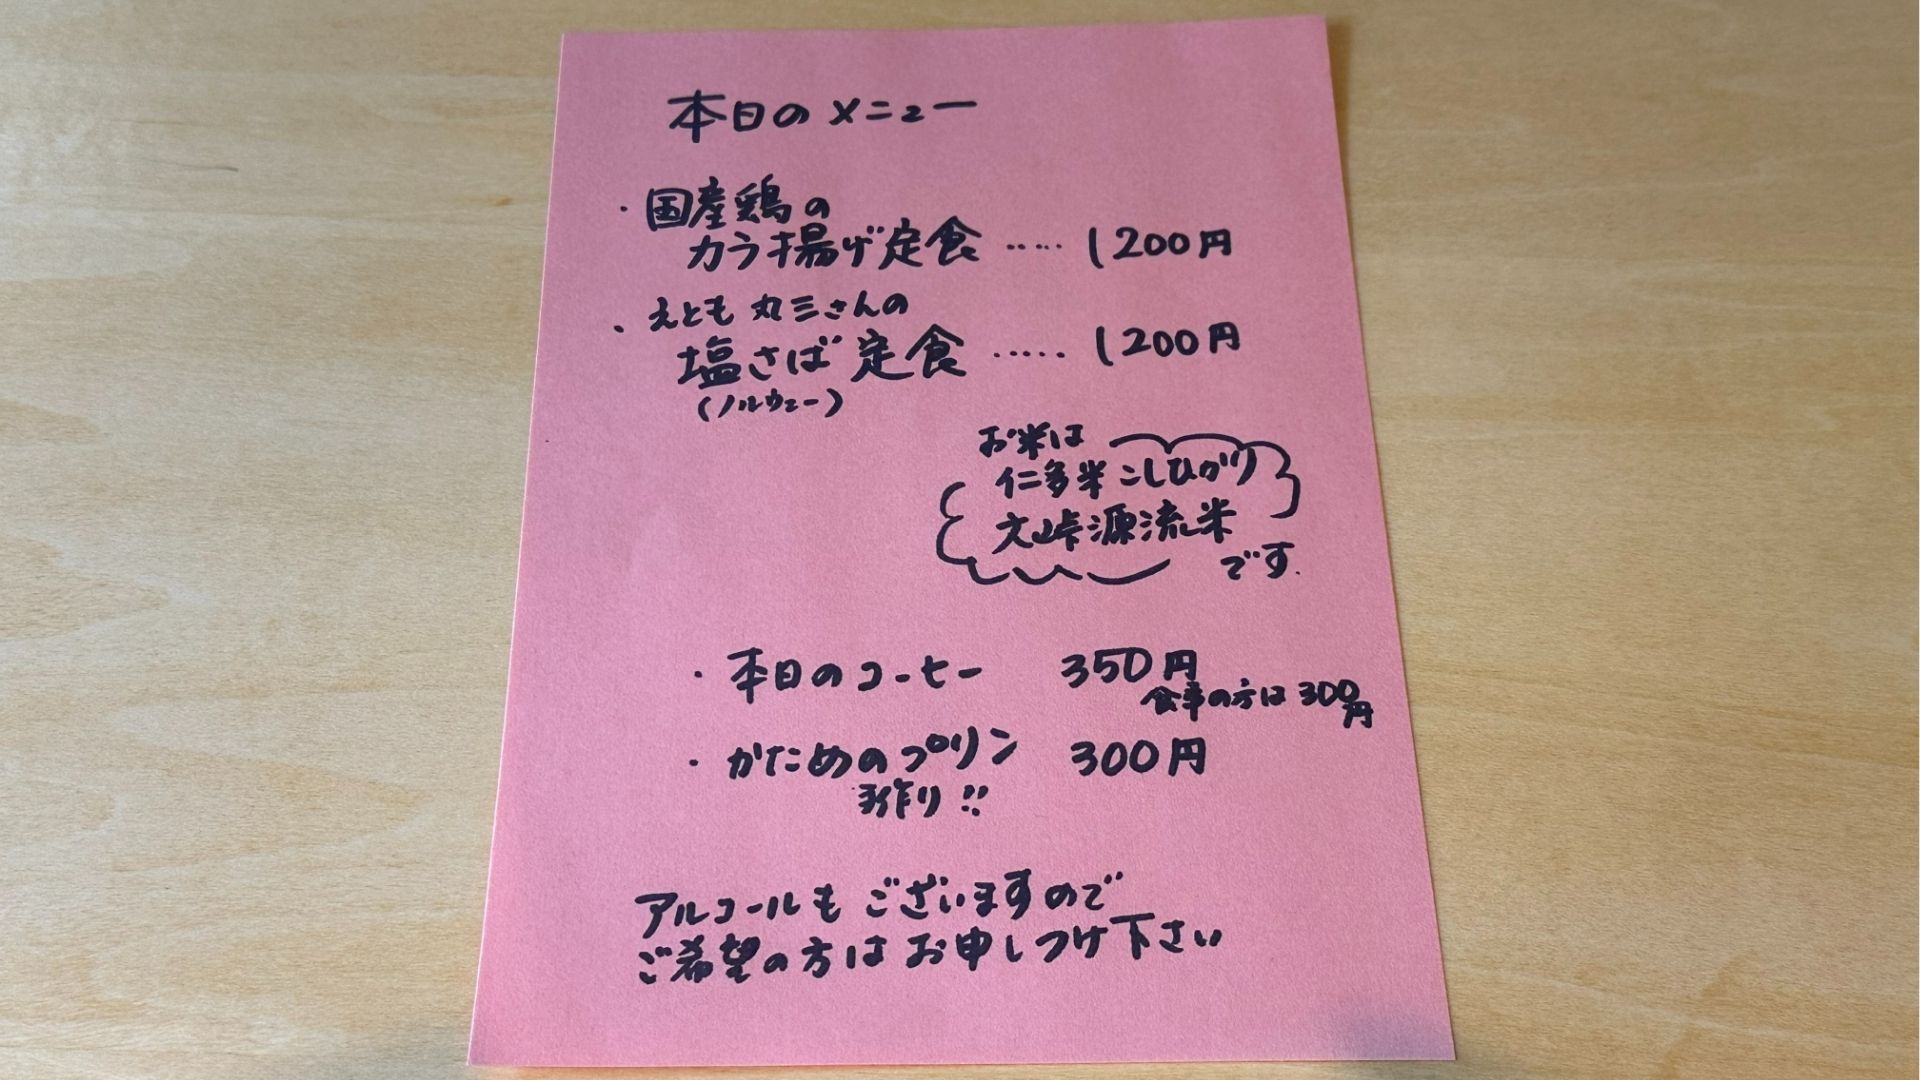 本日のメニュー
・国産鶏の
カラ揚げ定食 ‥‥‥ 1200円
・えとも 丸三さんの
塩さば定食 ‥‥‥ 1200円
(ノルウェー)
お米は
仁多米こしひかり
大峠源流米
です.
・本日のコーヒー 350円
食事の方は 300円
・かためのプリン 300円
手作り!!
アルコールもございますので
ご希望の方はお申しつけ下さい